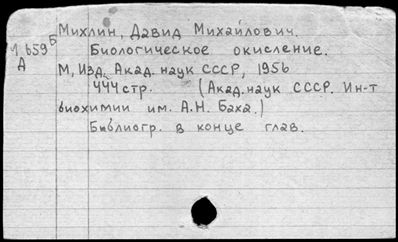 Михлин, Давид Михайлович.
Биологическое окисление.
М, Изд. Акад. наук СССР, 1956
444 стр. (Акад. наук СССР. Ин-т
биохимии им. А.Н. Баха.)
Библиогр. в конце глав.
Б
659
Д